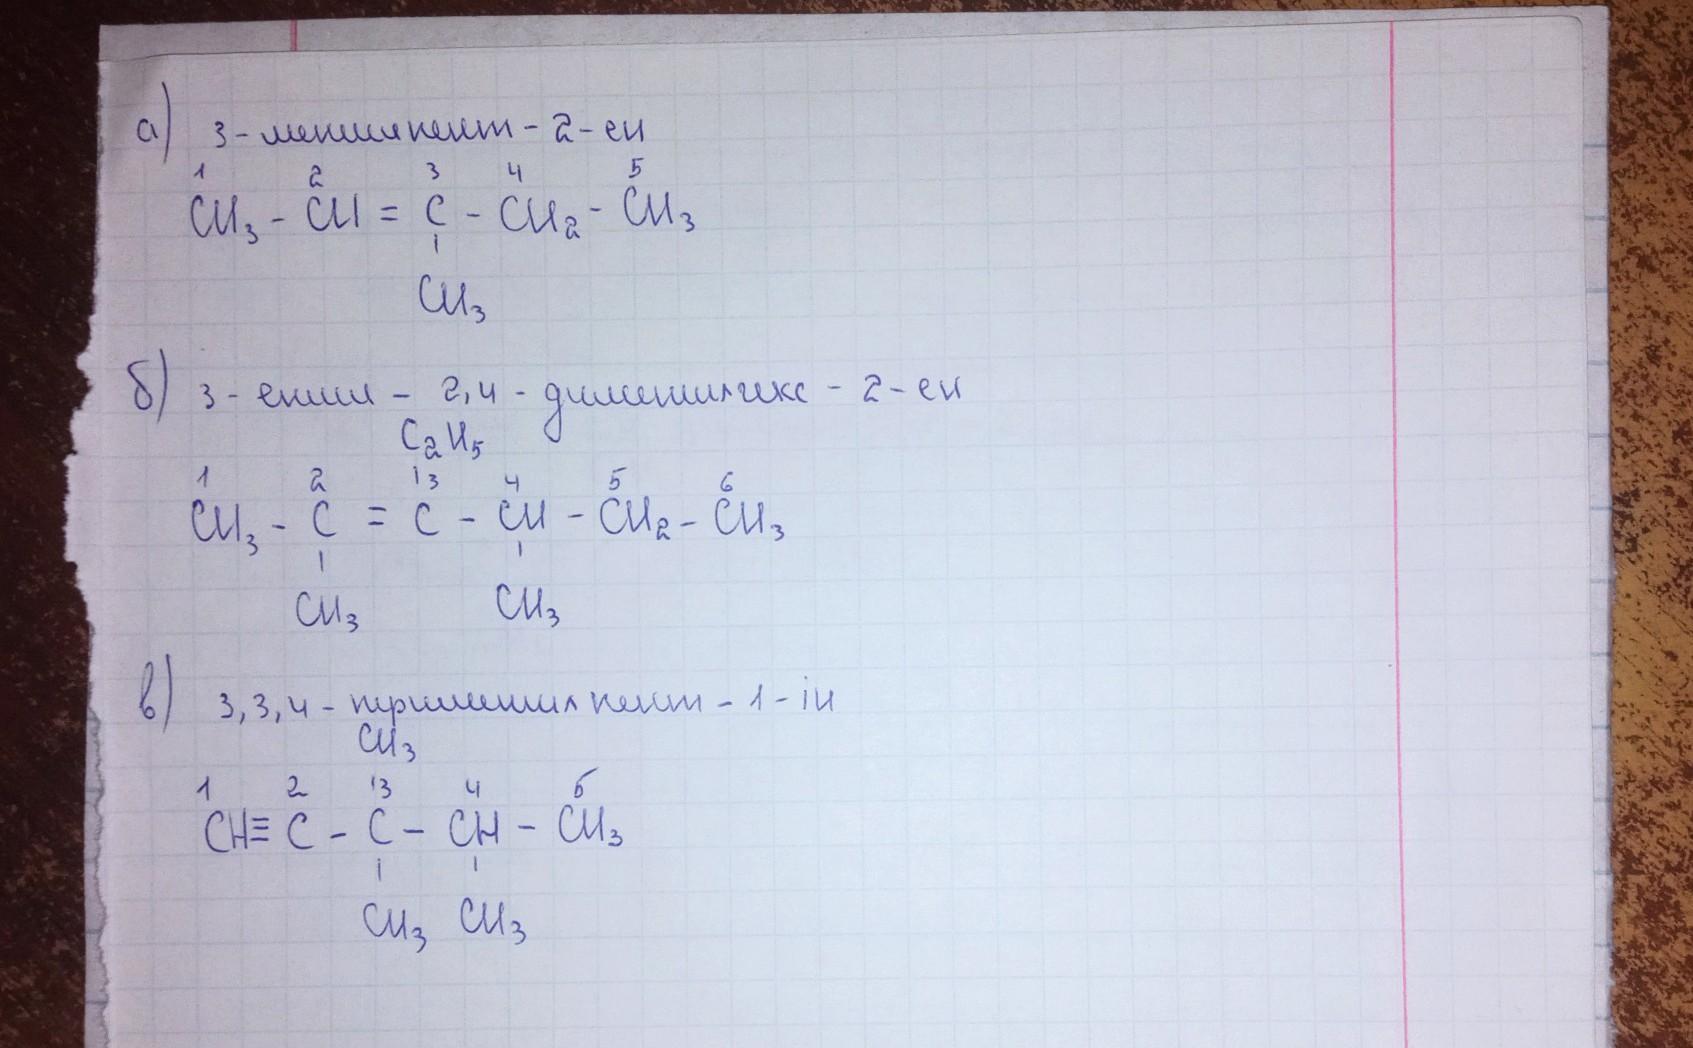 а) 3 - метилпент - 2 - ен
1 2 3 4 5
CH₃ - CH = C - CH₂ - CH₃
CH₃
б) 3 - етил - 2,4 - диметилгекс - 2 - ен
C₂H₅
1 2 3 4 5 6
CH₃ - C = C - CH - CH₂ - CH₃
CH₃ CH₃
в) 3,3,4 - триметилпент - 1 - ін
CH₃
1 2 3 4 5
CH ≡ C - C - CH - CH₃
CH₃ CH₃